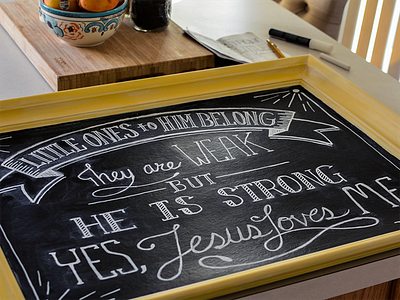 LITTLE ONES to HIM BELONG
They are WEAK
BUT
HE IS STRONG
YES, Jesus Loves ME